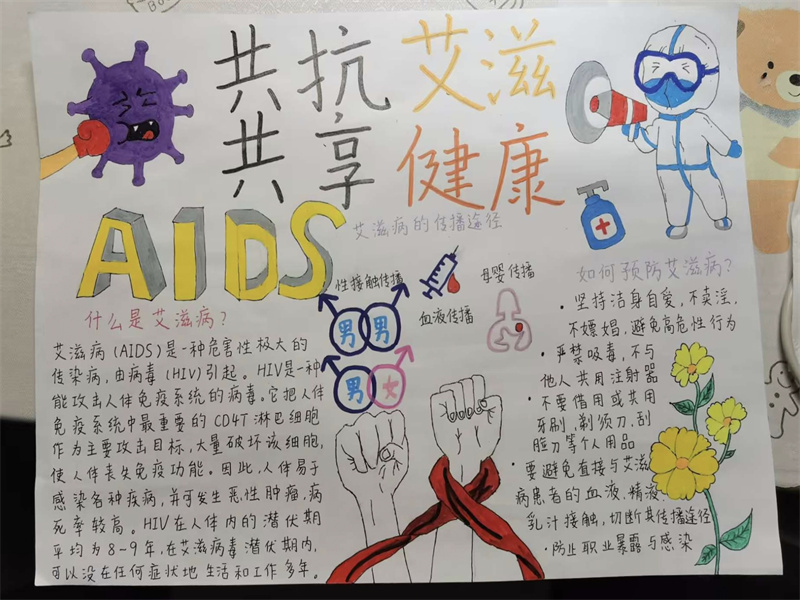 共抗艾滋
共享健康
AIDS
艾滋病的传播途径
性接触传播
血液传播
母婴传播
男男
男女
什么是艾滋病?
艾滋病(AIDS)是一种危害性极大的
传染病,由病毒(HIV)引起。HIV是一种
能攻击人体免疫系统的病毒。它把人体
免疫系统中最重要的CD4T淋巴细胞
作为主要攻击目标,大量破坏该细胞,
使人体丧失免疫功能。因此,人体易于
感染各种疾病,并可发生恶性肿瘤,病
死率较高。HIV在人体内的潜伏期
平均为8-9年,在艾滋病毒潜伏期内,
可以没在任何症状地生活和工作多年。
如何预防艾滋病?
·坚持洁身自爱,不卖淫,
不嫖娼,避免高危性行为
·严禁吸毒,不与
他人共用注射器
·不要借用或共用
牙刷,剃须刀,刮
脸刀等个人用品
·要避免直接与艾滋
病患者的血液、精液
乳汁接触,切断其传播途径
·防止职业暴露与感染